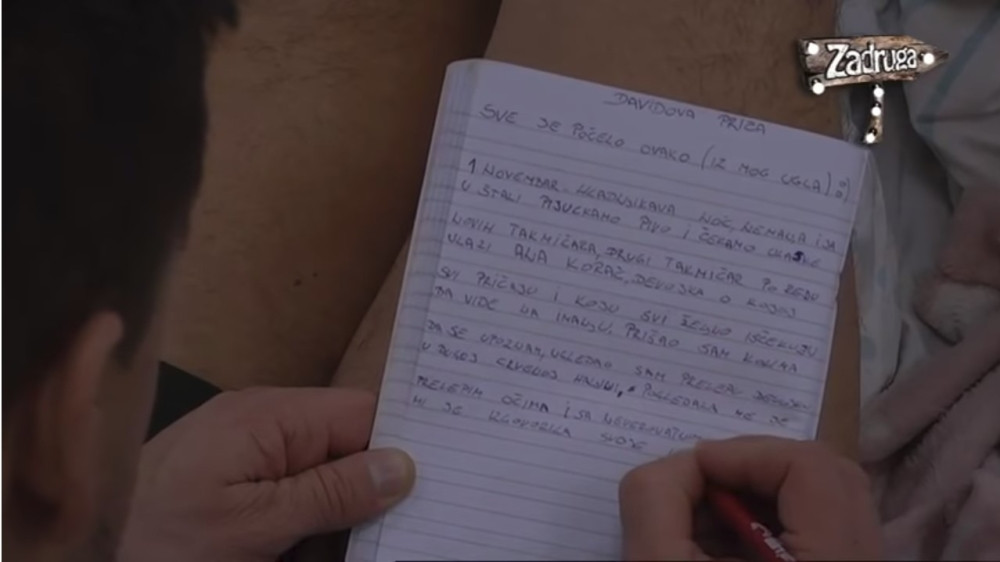 Zadruga
DAVIDOVA PRIČA
SVE JE POČELO OVAKO (IZ MOG UGLA) :)
1 NOVEMBAR. HLADNJIKAVA NOĆ, NEMANJA I JA
U ŠTALI PIJUCKAMO PIVO I ČEKAMO ULASKE
NOVIH TAKMIČARA, DRUGI TAKMIČAR PO REDU
ULAZI ANA KORAĆ, DEVOJKA O KOJOJ
SVI PRIČAJU I KOJU SVI ŽELJNO IŠČEKUJU
DA VIDE NA IMANJU. PRIŠAO SAM KOLIMA
DA SE UPOZNAM, UGLEDAO SAM PRELEPU DEVOJKU
U DUGOJ CRVENOJ HALJINI, POGLEDALA ME JE
PRELEPIM OČIMA I SA
MI JE IZGOVORILA SVOJE